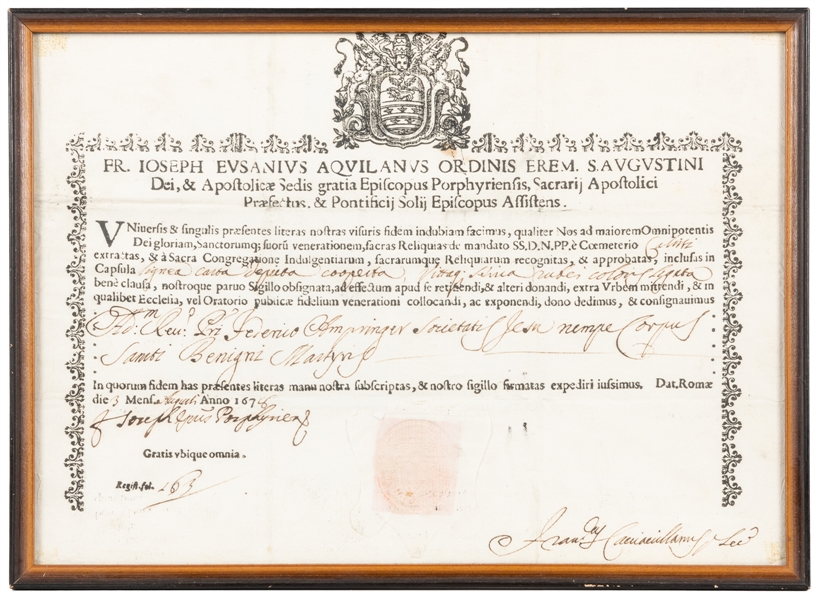 FR. IOSEPH EVSANIVS AQVILANVS ORDINIS EREM. S.AVGVSTINI
Dei, & Apostolicæ Sedis gratia Episcopus Porphyriensis, Sacrarij Apostolici
Præfectus, & Pontificij Solij Episcopus Assistens.
VNiversis & singulis præsentes literas nostras visuris fidem indubiam facimus, qualiter Nos ad maiorem Omnipotentis
Dei gloriam, Sanctorumq; suorũ venerationem, sacras Reliquias de mandato SS.D.N.PP. è Cœmeterio Calisti
extractas, & à Sacra Congregatione Indulgentiarum, sacrarumque Reliquiarum recognitas, & approbatas, inclusas in
Capsula lignea carta depicta cooperta, serica rubei coloris ligata
bene clausa, nostroque paruo Sigillo obsignata, ad effectum apud se retinendi, & alteri donandi, extra Vrbem mittendi, & in
qualibet Ecclesia, vel Oratorio publicæ fidelium venerationi collocandi, ac exponendi, dono dedimus, & consignauimus
Adm. Reu. Pri Federico Ampringer Societatis Jesu nempe Corpus
Sancti Benigni Martyris
In quorum fidem has præsentes literas manu nostra subscriptas, & nostro sigillo firmatas expediri iussimus. Dat. Romæ
die 3 Mens. Augusti Anno 167
Joseph Epus Porphyrien
Gratis vbique omnia.
Regist. fol. 163
Fran